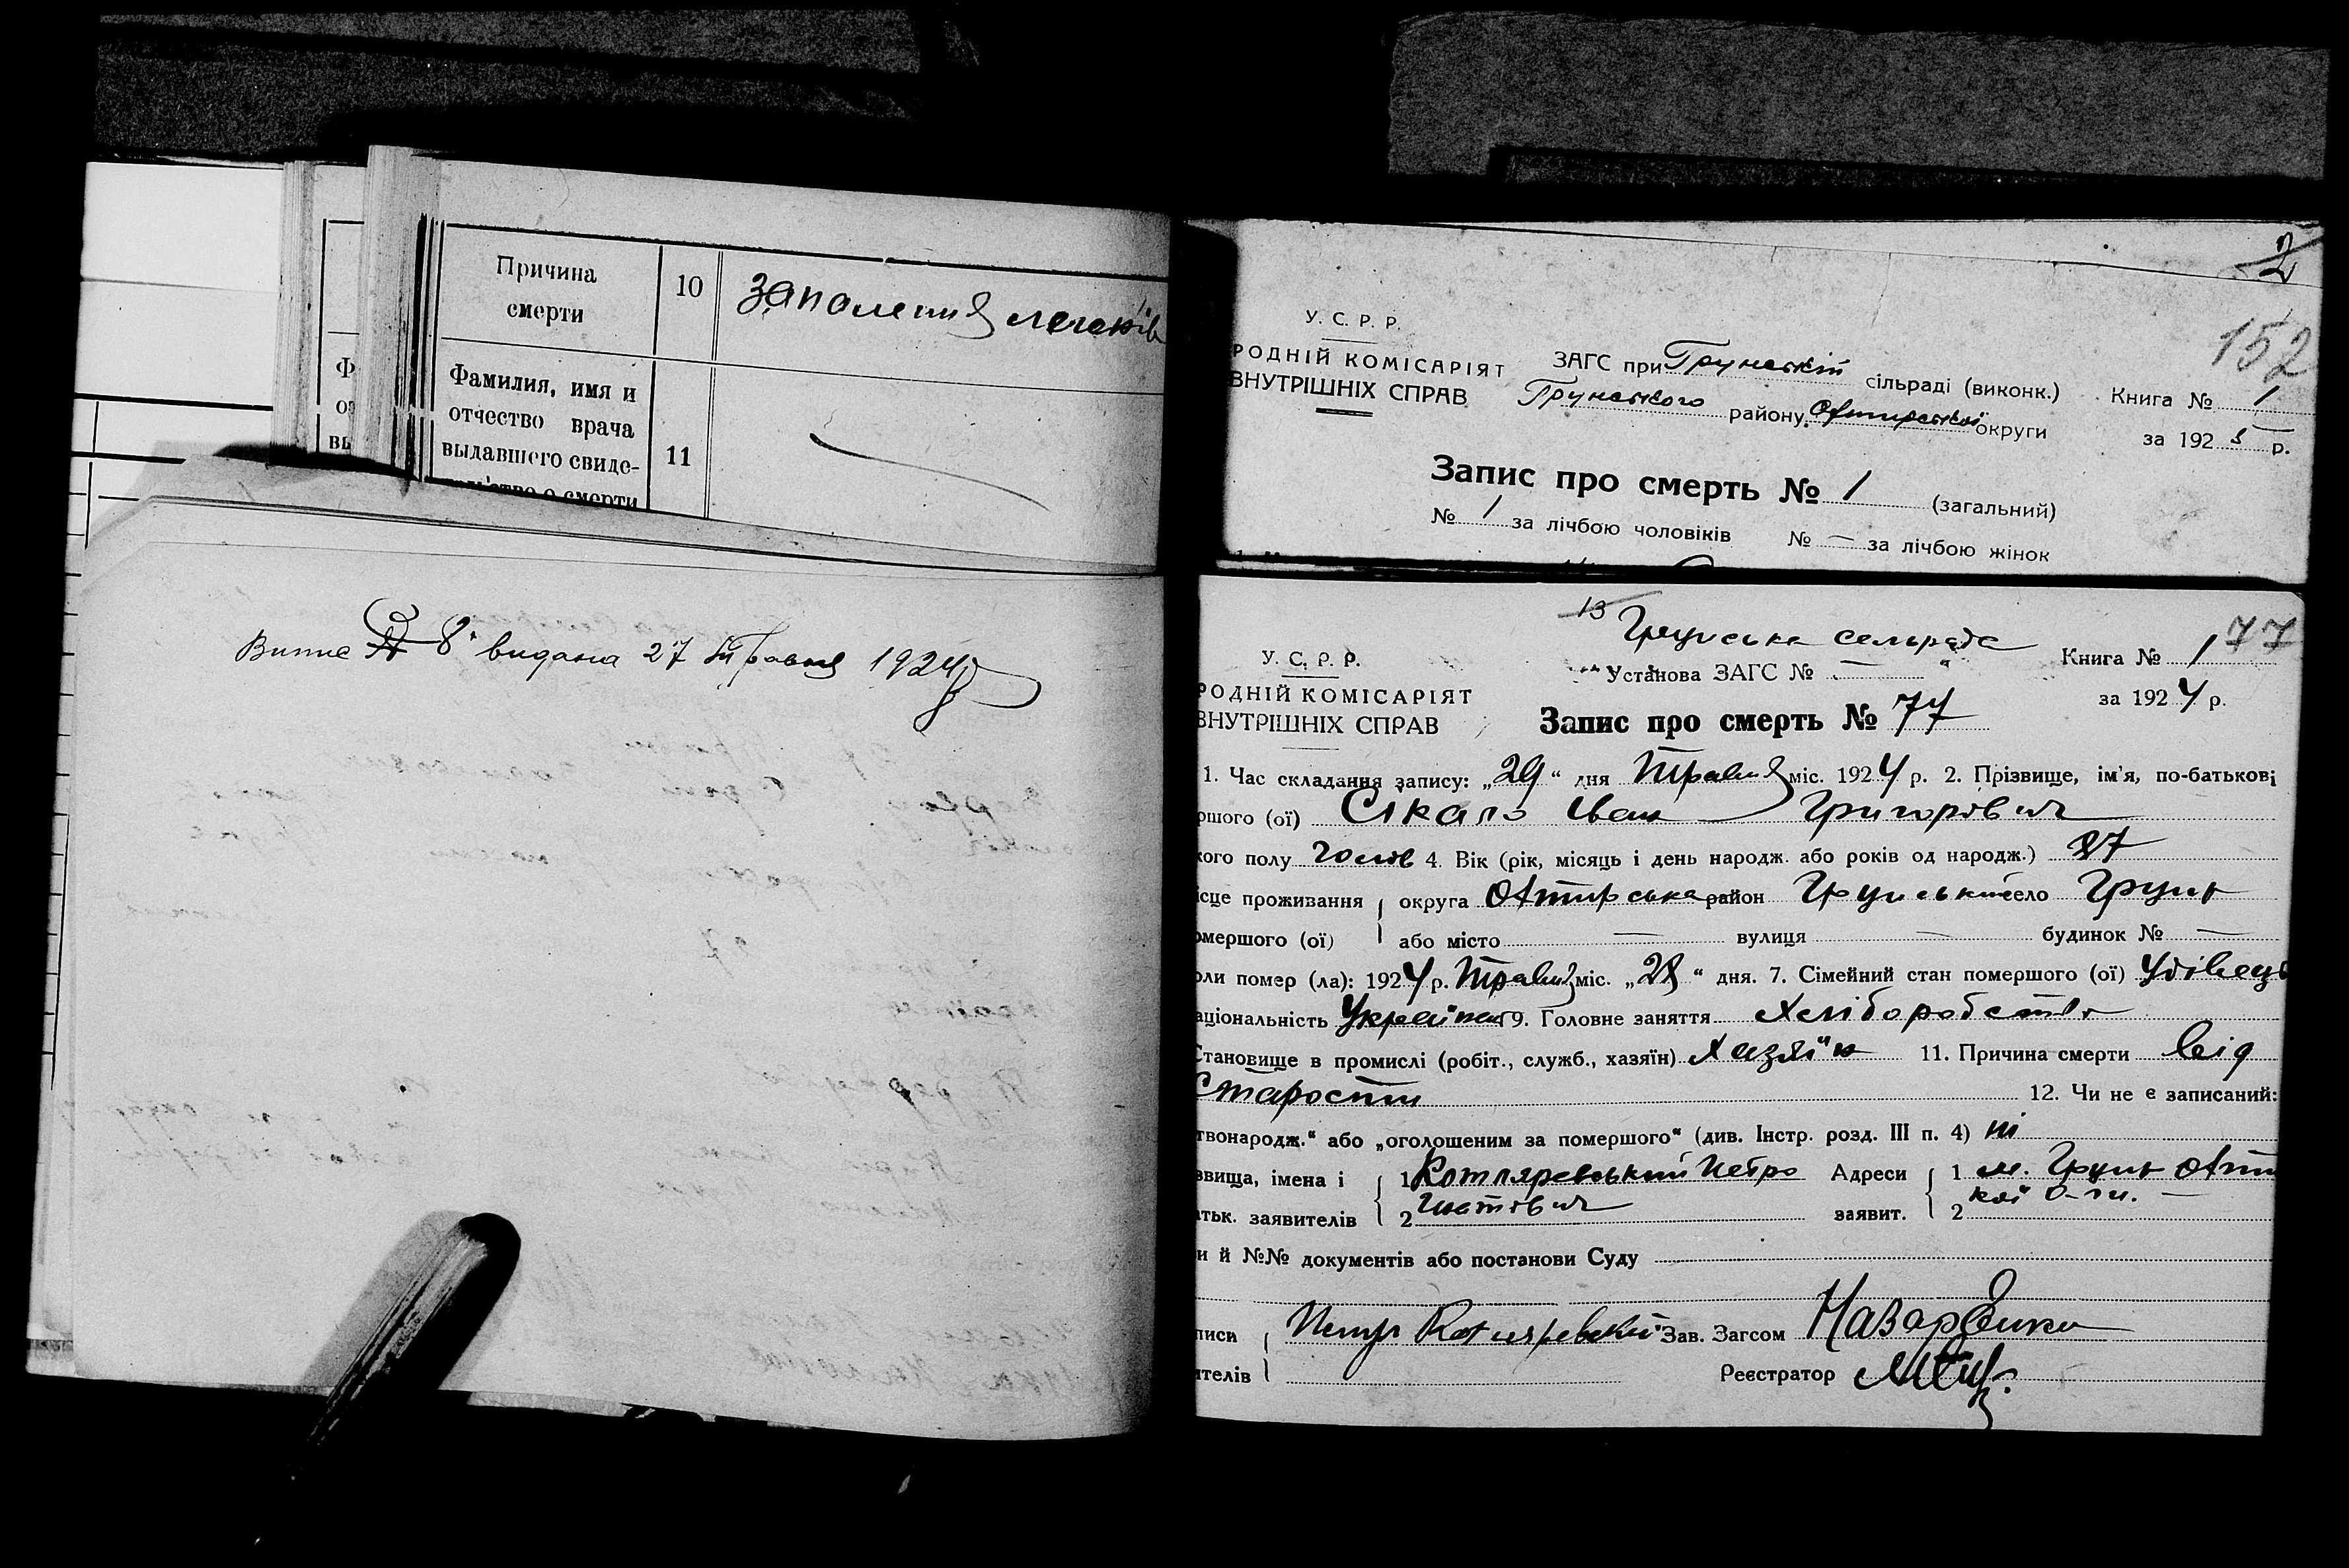 Причина
смерти
10
запалення легенів
Фамилия, имя и
отчество врача
выдавшего свиде-
11
Ф
от
вы
Випис № 8 видана 27 Травня 1924 р
2
152
У. С. Р. Р.
РОДНІЙ КОМІСАРІЯТ
ВНУТРІШНІХ СПРАВ
ЗАГС при Грунській сільраді (виконк.)
Грунського району Охтирської округи
Книга № 1
за 1925 р.
Запис про смерть № 1 (загальний)
№ 1 за лічбою чоловіків № — за лічбою жінок
13
Грунська сельрада
77
У. С. Р. Р.
РОДНІЙ КОМІСАРІЯТ
ВНУТРІШНІХ СПРАВ
Установа ЗАГС № —
Книга № 1
за 1924 р.
Запис про смерть № 77
1. Час складання запису: „29“ дня Травня міс. 1924 р. 2. Прізвище, ім'я, по-батькові
ршого (ої) Сікало Іван Григорівич
кого полу чолов 4. Вік (рік, місяць і день народж. або років од народж.) 87
ісце проживання округа Охтирська район Грунський село Грунь
омершого (ої) або місто — вулиця — будинок № —
оли помер (ла): 1924 р. Травня міс. „28“ дня. 7. Сімейний стан помершого (ої) Удівець
аціональність Українец 9. Головне заняття Хліборобство
Становище в промислі (робіт., служб., хазяїн) Хазяїн 11. Причина смерти від
Старости 12. Чи не є записаний:
твонародж.“ або „оголошеним за помершого“ (див. Інстр. розд. III п. 4) ні
звища, імена і 1 Котляревський Петро Адреси 1 м. Грунь Охти
атьк. заявителів 2 Гнатівич заявит. 2 кої о-ги. —
и й №№ документів або постанови Суду
писи Петр Котляревский Зав. Загсом Назаренко
ителів Реєстратор